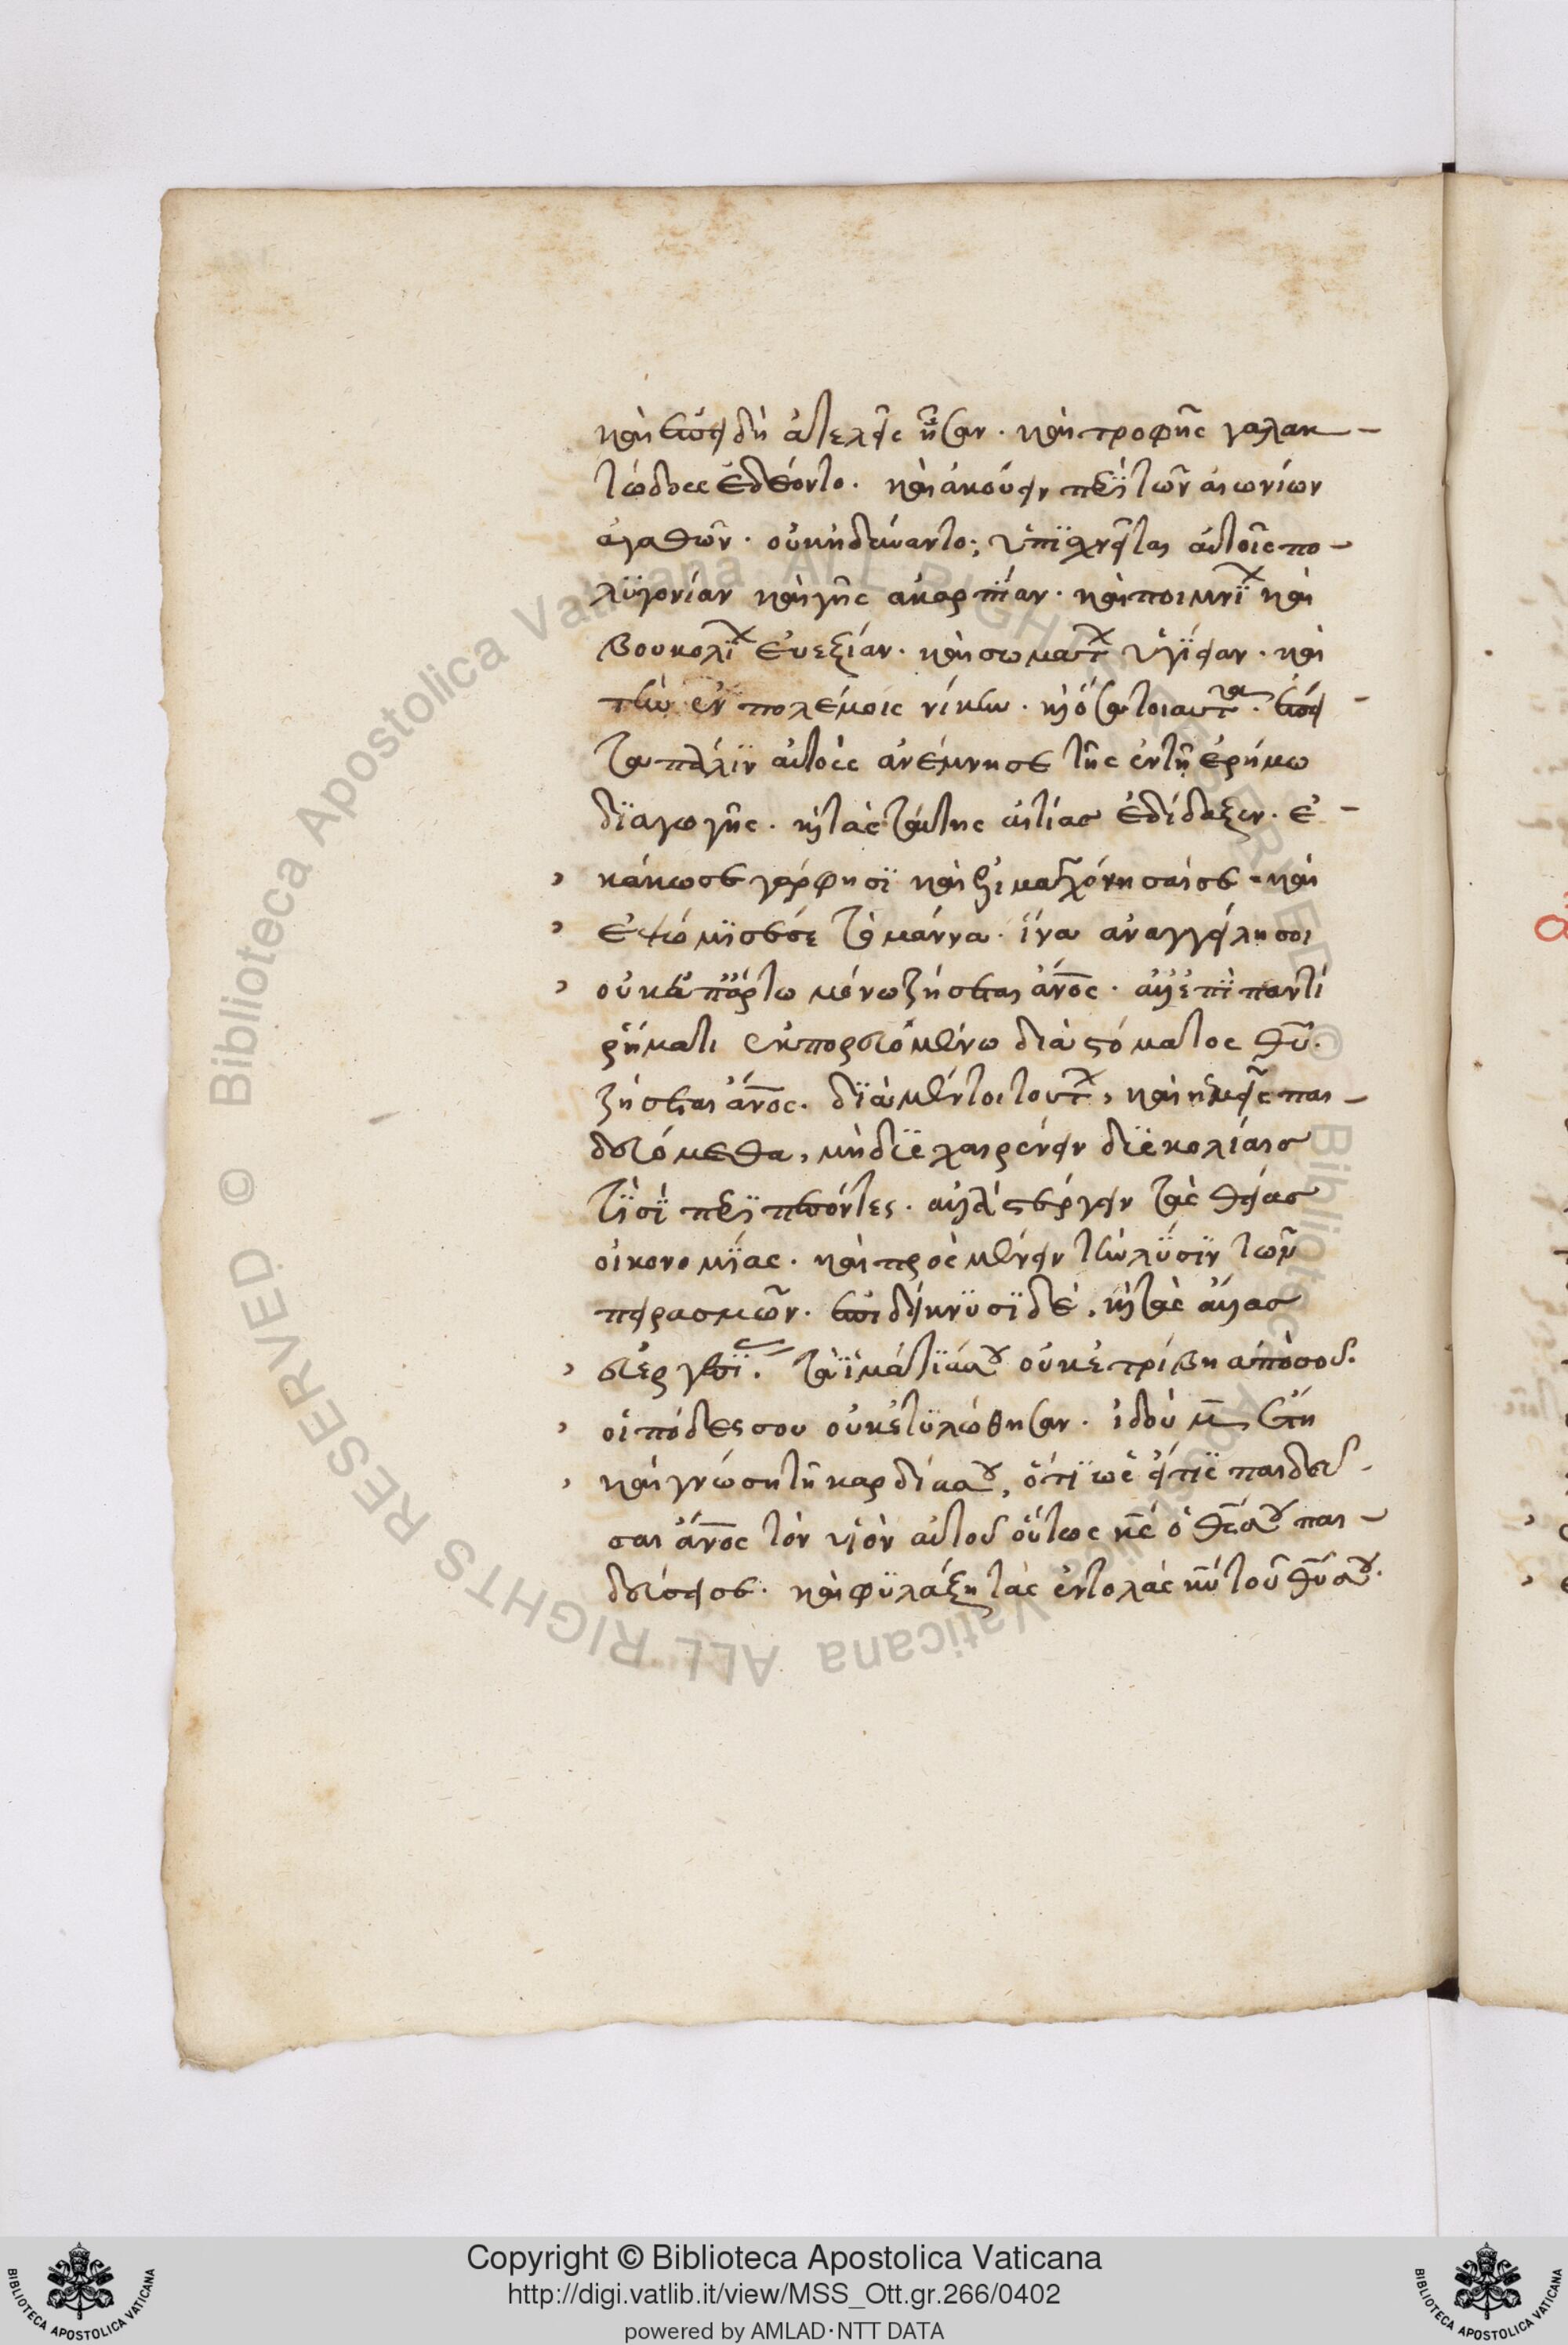 καὶ ἐπειδὴ ἀτελεῖς ἦσαν. καὶ τροφῆς γαλακ-
τώδους ἐδέοντο. καὶ ἀκούειν περὶ τῶν αἰωνίων
ἀγαθῶν. οὐκ ἠδύναντο; ὑπισχνεῖται αὐτοῖς πο-
λυγονίαν καὶ γῆς εὐκαρπίαν. καὶ ποιμνίων καὶ
βουκολίων εὐεξίαν. καὶ σωμάτων ὑγίειαν. καὶ
τὴν ἐν πολέμοις νίκην. καὶ ὅσα τοιαῦτα. ἔπει
τα πάλιν αὐτοὺς ἀνέμνησε τῆς ἐν τῇ ἐρήμω
διαγωγῆς. καὶ τὰς ταύτης αἰτίας ἐδίδαξεν. ἐ-
κάκωσε γάρ φησι καὶ ἐλιμαγχόνησαί σε. καὶ
ἐψώμισέ σε τὸ μάννα. ἵνα ἀναγγείλη σοι
οὐκ ἐπ' ἄρτω μόνω ζήσεται ἄνος. ἀλλ' ἐπὶ παντὶ
ῥήματι ἐκπορευομένω διὰ στόματος θυ.
ζήσεται ἄνος. διὰ μέντοι τούτων, καὶ ἡμεῖς παι-
δευόμεθα, μὴ δυσχεραίνειν δυσκολίαις
τισὶ περιπεσόντες. ἀλλὰ στέργειν τὰς θείας
οἰκονομίας. καὶ προσμένειν τὴν λύσιν τῶν
πειρασμῶν. ἐπιδείκνυσι δὲ, καὶ τὰς ἄλλας
εὐεργεσίας. τὰ ἱμάτιά σου οὐκ ἐτρίβη ἀπὸ σοῦ.
οἱ πόδες σου οὐκ ἐτυλώθησαν. ἰδοὺ μ ἔτη
καὶ γνώση τῇ καρδία σου, ὅτι ὡς εἴ τις παιδεύ-
σαι ἄνος τὸν υἱὸν αὐτοῦ οὕτως κς ὁ θς σου παι-
δεύσει σε. καὶ φυλάξη τὰς ἐντολὰς κυ τοῦ θυ σου.
Copyright © Biblioteca Apostolica Vaticana
http://digi.vatlib.it/view/MSS_Ott.gr.266/0402
powered by AMLAD·NTT DATA